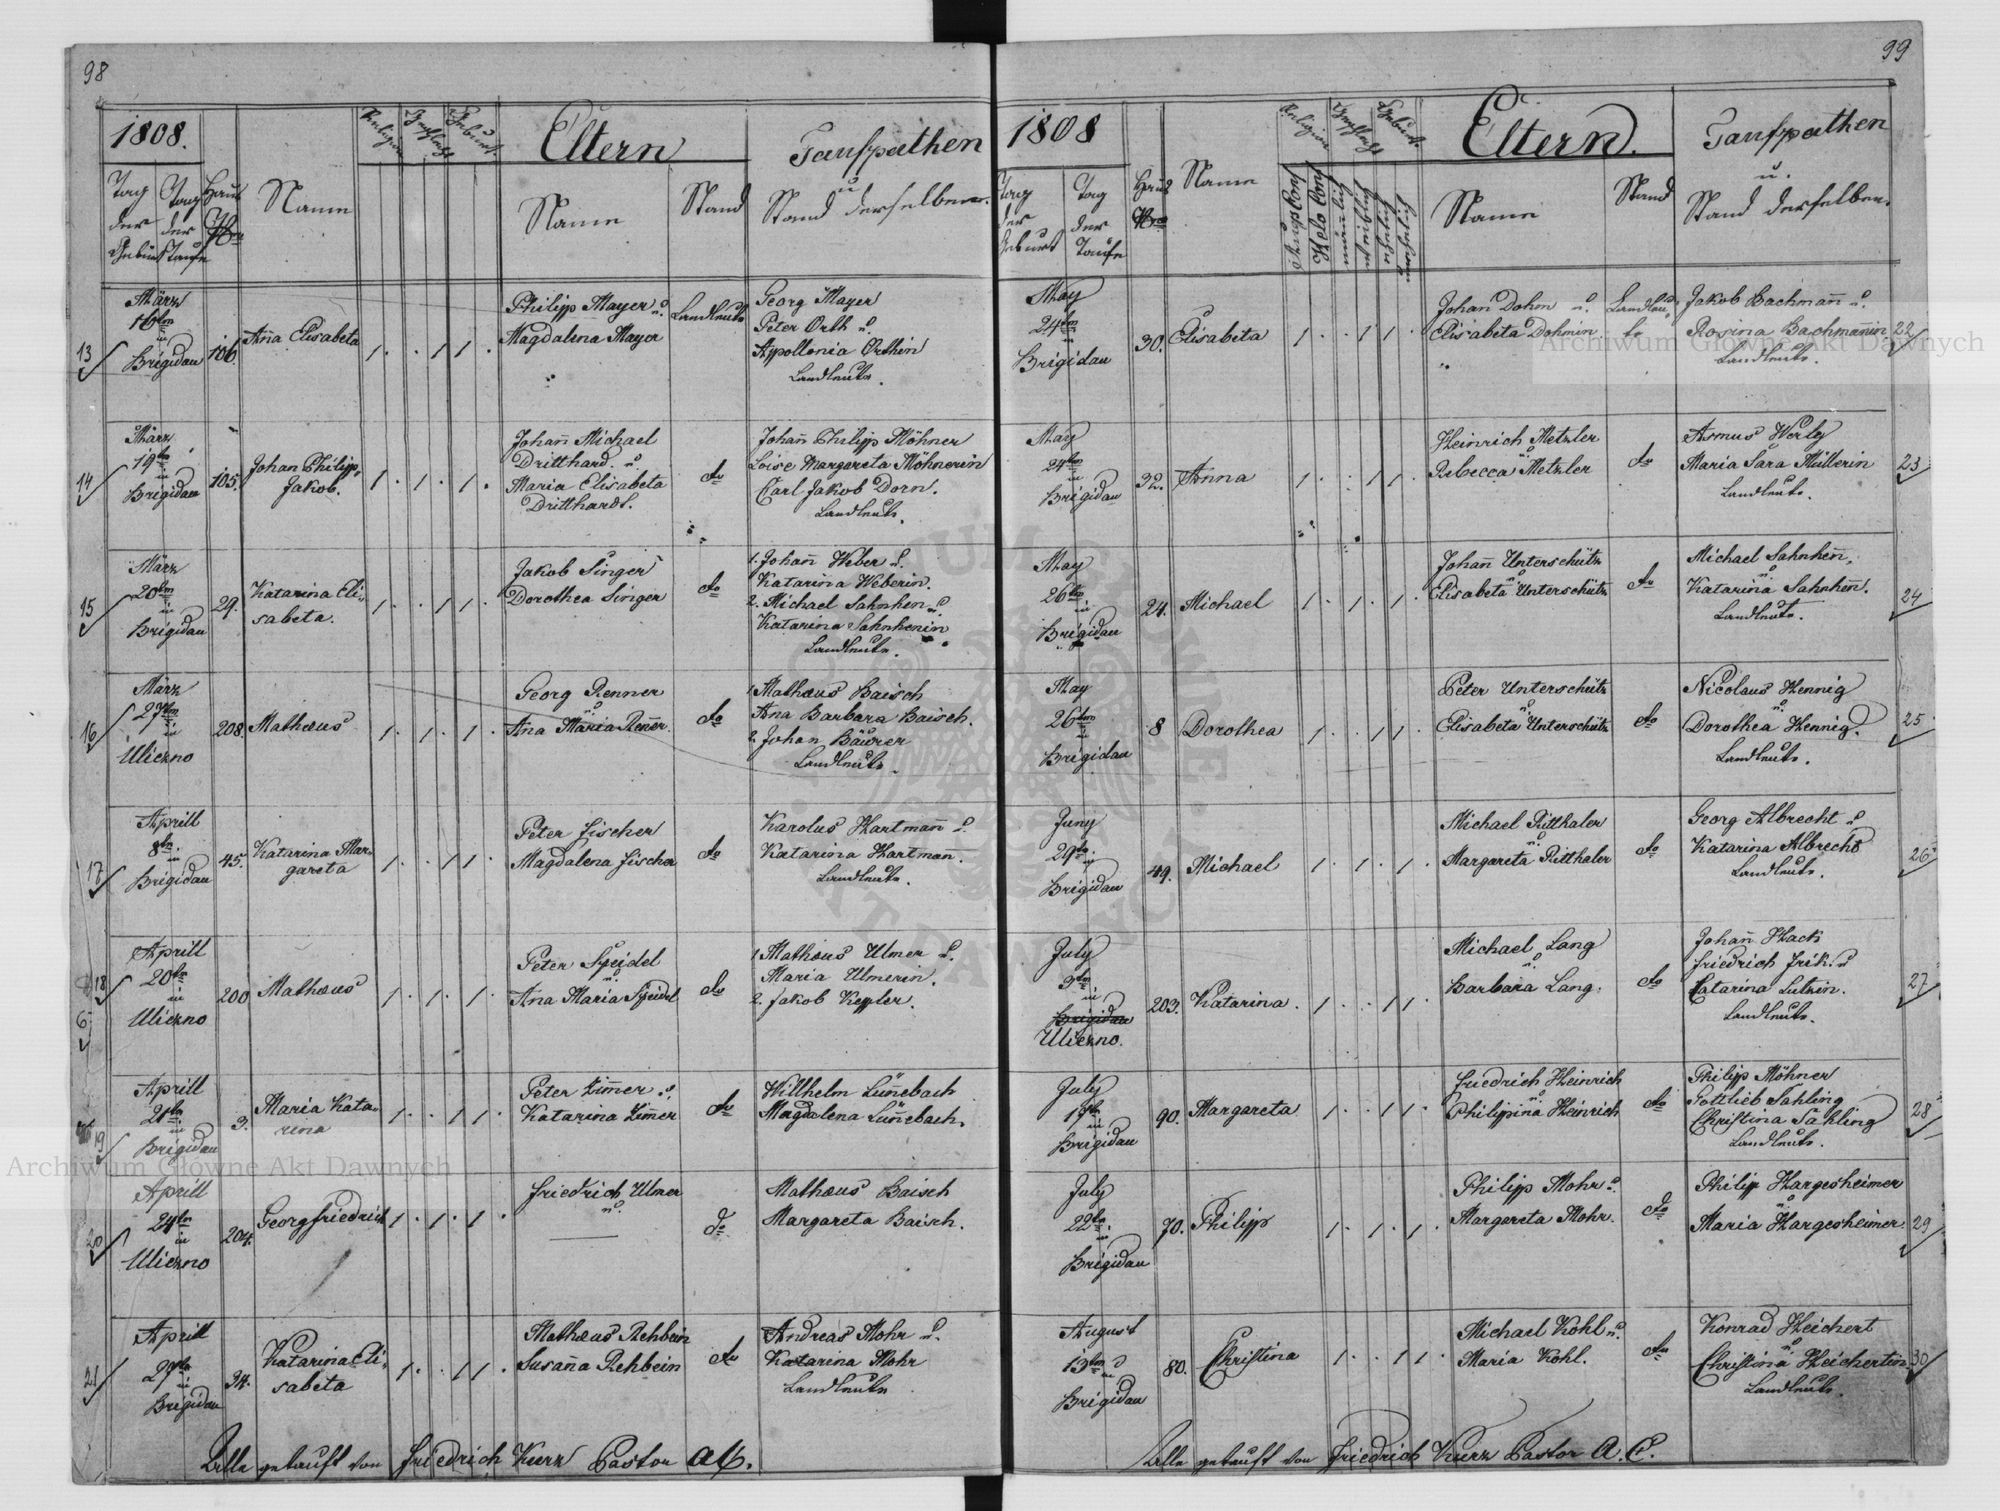 98
1808.
Religion
Geschlecht
Geburt
Eltern
Taufpathen
Tag der Geburt
Tag der Taufe
Haus Nro
Name
Name
Stand
u
Stand derselben.
13
März
16ten
in
Brigidau
106.
Ana Elisabeta
1 . . 1 1 .
Philipp Mayer u.
Magdalena Mayer
Landleute
Georg Mayer
Peter Orth u.
Appollonia Orthin
Landleute.
14
März
19ten
in
Brigidau
105.
Johan Philipp,
Jakob.
1 . 1 . 1 .
Johañ Michael
Dritthard. u.
Maria Elisabeta
Dritthardt.
do
Johañ Philipp Möhner
Loise Margareta Möhnerin
Carl Jakob Dorn.
Landleute.
15
März
20ten
in
Brigidau
29.
Katarina Eli-
sabeta.
1 . . 1 1 .
Jakob Singer
Dorothea Singer
do
1. Johañ Weber u.
Katarina Weberin.
2. Michael Sahnhen u.
Katarina Sahnhenin
Landleute.
16
März
27ten
in
Uliczno
208.
Mathæus
1 . 1 . 1 .
Georg Renner
u.
Ana Maria Reñer
do
1. Mathæus Baisch
Ana Barbara Baisch.
2. Johan Bäurer
Landleute.
17
Aprill
8ten
in
Brigidau
45.
Katarina Mar-
gareta
1 . . 1 1 .
Peter Fischer
Magdalena Fischer
do
Karolus Hartmañ u.
Katarina Hartmañ.
Landleute.
18
Aprill
20ten
in
Uliczno
200
Mathæus
1 . 1 . 1 .
Peter Speidel
u.
Ana Maria Speidel
do
1. Mathæus Ulmer u.
Maria Ulmerin.
2. Jakob Keppler.
19
Aprill
21ten
in
Brigidau
3.
Maria Kata-
rina
1 . . 1 1 .
Peter Zim̃er u.
Katarina Zimer
do
Willhelm Luñebach
Magdalena Luñebach.
20
Aprill
24ten
in
Uliczno
204.
Georg friedrich
1 . 1 . 1 .
Friedrich Ulmer
u.
do
Mathæus Baisch
Margareta Baisch.
21
Aprill
27ten
in
Brigidau
34.
Katarina Eli-
sabeta
1 . . 1 1 .
Mathæus Rehbein
Susaña Rehbein
do
Andreas Mohr u.
Katarina Mohr
Landleute
Alle getauft von Friedrich Kurz Pastor AC.
99
1808
Religion
Geschlecht
Geburt
Eltern.
Taufpathen
Tag der Geburt
Tag der Taufe
Haus Nro
Name
Augs Conf
Helv Conf
männlich
weiblich
Name
Stand
u.
Stand derselben.
May
24ten
in
Brigidau
30.
Elisabeta
1 . . 1 1 .
Johan Dohm u.
Elisabeta Dohmin
Landleu-
te
Jakob Bachmañ u.
Rosina Bachmañin
Landleute.
22
May
24ten
in
Brigidau
32.
Anna
1 . . 1 1 .
Heinrich Metzler
u.
Rebecca Metzler
do
Asmus Werly
Maria Sara Müllerin
Landleute.
23
May
26ten
in
Brigidau
24.
Michael
1 . 1 . 1 .
Johañ Unterschütz
u.
Elisabeta Unterschütz
do
Michael Sahnheñ,
u.
Katarina Sahnheñ.
Landleute.
24
May
26ten
in
Brigidau
8
Dorothea
1 . . 1 1 .
Peter Unterschütz
u.
Elisabeta Unterschütz
do
Nicolaus Hennig
u.
Dorothea Hennig.
Landleute.
25
Juny
29ten
in
Brigidau
49.
Michael
1 . 1 . 1 .
Michael Ritthaler
u.
Margareta Ritthaler
do
Georg Albrecht u
Katarina Albrecht
Landleute.
26
July
3ten
in
Brigidau
Uliczno.
203.
Katarina.
1 . . 1 1 .
Michael Lang
u.
Barbara Lang.
do
Johañ Hack
Friedrich Frik. u
Catarina Lutzin.
Landleute.
27
July
17ten
in
Brigidau
90.
Margareta
1 . . 1 1 .
Friedrich Heinrich
u.
Philippina Heinrich
do
Philipp Möhner
Gottlieb Sahling
Christina Sahling
Landleute.
28
July
22ten
in
Brigidau
70.
Philipp
1 . 1 . 1 .
Philipp Mohr u.
Margareta Mohr.
do
Philipp Hargesheimer
u.
Maria Hargesheimer
29
August
13ten
in
Brigidau
80.
Christina
1 . . 1 1 .
Michael Kohl u.
Maria Kohl.
do
Konrad Heichert
u.
Christina Heichertin
Landleute.
30
Alle getauft von Friedrich Kurz Pastor A. C.
Archiwum Główne Akt Dawnych
Archiwum Główne Akt Dawnych